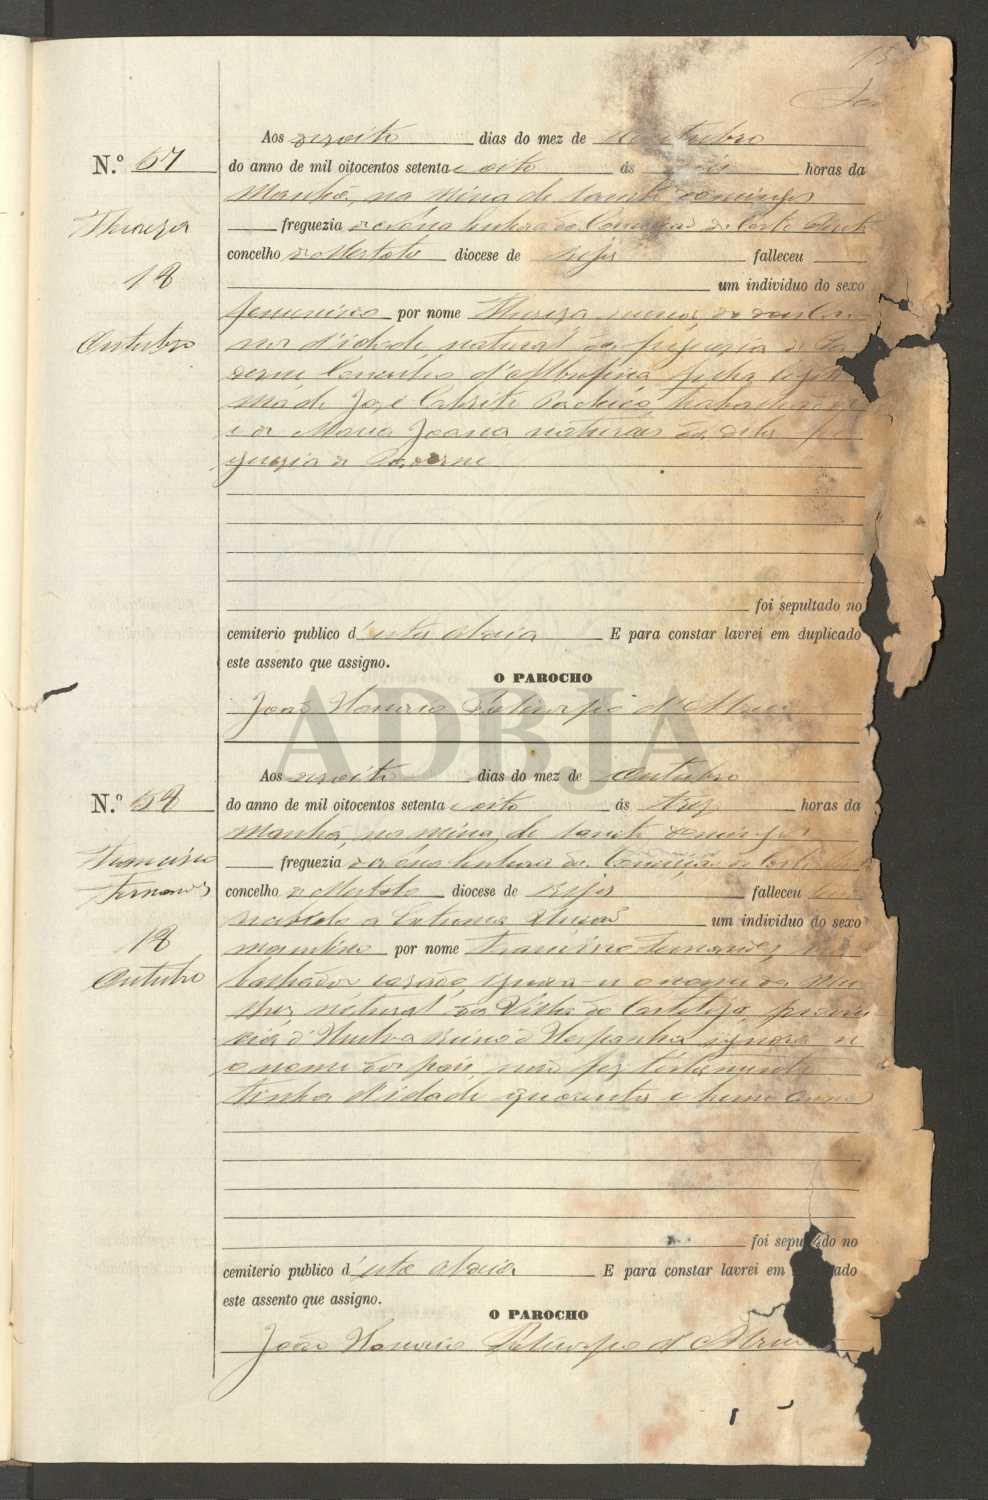 15
Aos dezoito dias do mez de Outubro
N.º 67 do anno de mil oitocentos setenta e oito ás seis horas da
Manhã, na Mina de Sancto Domingos
Thereza
freguezia de Nossa Senhora da Conceição de Corte do Pinto
concelho de Mertola diocese de Beja falleceu
18
um individuo do sexo
femenino por nome Thereza, menor, de dous an-
Outubro
nos d'idade, natural da freguezia de Pa-
derne Concelho d'Albufeira, filha legiti-
ma de José Cabrita trabalhador
e de Maria Joana naturaes da dita fre-
guezia de Paderne
foi sepultado no
cemiterio publico d'esta Aldeia E para constar lavrei em duplicado
este assento que assigno.
O PAROCHO
João Honorio d'Abreu
ADBJA
Aos dezoito dias do mez de Outubro
N.º 68 do anno de mil oitocentos setenta e oito ás trez horas da
Manhã, na Mina de Sancto Domingos
Francisco
Fernandes
freguezia de Nossa Senhora da Conceição de Corte do Pinto
concelho de Mertola diocese de Beja falleceu
recebido a Extrema Unção um individuo do sexo
18
masculino por nome Francisco Fernandes, tra-
Outubro
balhador casado, ignora-se o nome da mu-
lher, natural da Villa de Cartaya, provin-
cia d'Huelva Reino d'Hespanha ignora-se
o nome dos pais, não fez testamento
tinha d'idade quarenta e hum annos
foi sepultado no
cemiterio publico d'esta Aldeia E para constar lavrei em
este assento que assigno.
O PAROCHO
João Honorio d'Abreu